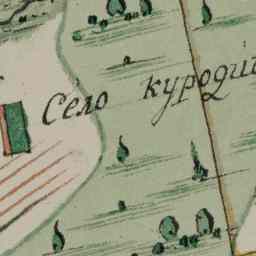 Село куроди